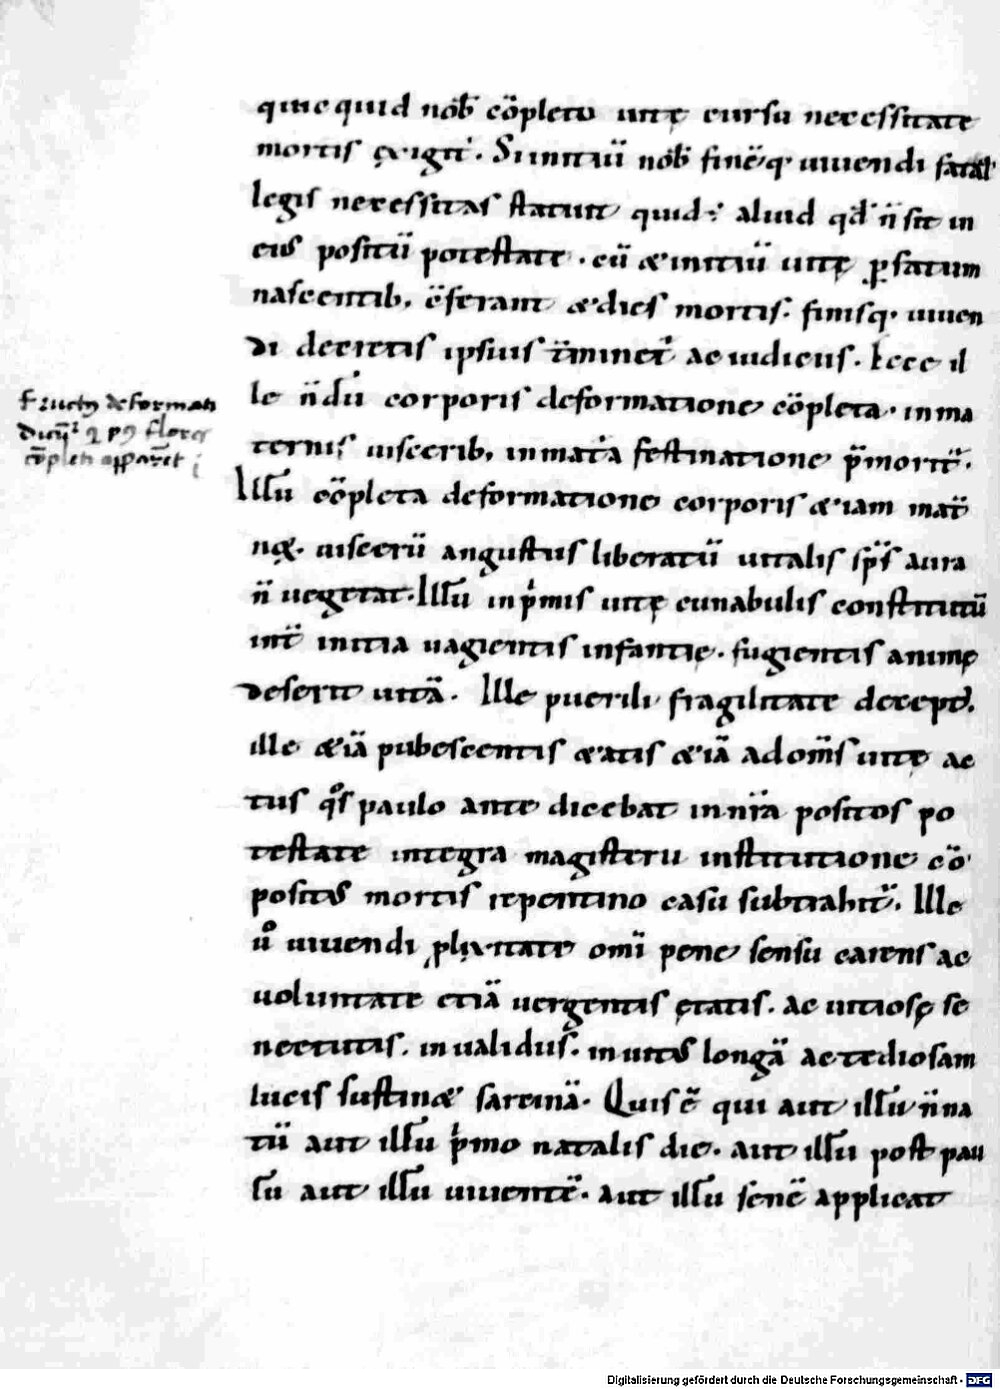 quicquid nob̄ cōpleto uitę cursu necessitate
mortis exigit᷑. Si initiū nob̄ finēq; uiuendi fatal̄
legis necessitas statuit quid ÷ aliud qd̄ n̄ sit in
eius positū potestate. cū & initiū uitę ꝑ fatum
nascentib; c̄ferant & dies mortis. finisq; uiuen
di decretis ipsius t̄minet᷑ ac iudicus. Ecce il
le n̄dū corporis deformatione cōpleta. in ma
ternis uiscerib; inmatura festinatione p̄morit᷑.
Illū cōpleta deformatione corporis & iam mat̄
nę. uiscerū angustus liberatū uitalis sp̄s aura
n̄ uegetat. Illū in pͥmis uitę cunabulis constitutū
int̄ initia uagientis infantię. fugientis animę
deserit uita. Ille puerili fragilitate decept᷒.
ille & iā pubescentis &atis & iā ad om̄s uitę ac
tus qͦs paulo ante dicebat in nr̄a positos po
testate integra magisterii institutione cō
positus mortis repentino casu subtrahit᷑. Ille
uͦ uiuendi ꝓlixitate omī pene sensu carens ac
uoluntate etiā uergentis ętatis. ac uitiosę se
nectutis. inualidus. inuitus longā ac tediosam
lucis sustin& sarcinā. Quis ē qui aut illū n̄ na
tū aut illū pͥmo natalis die. aut illū post pau
lū aut illū iuuentē. aut illū senē applicat
Fructꝰ deformati
flores
cōpleti apparēt